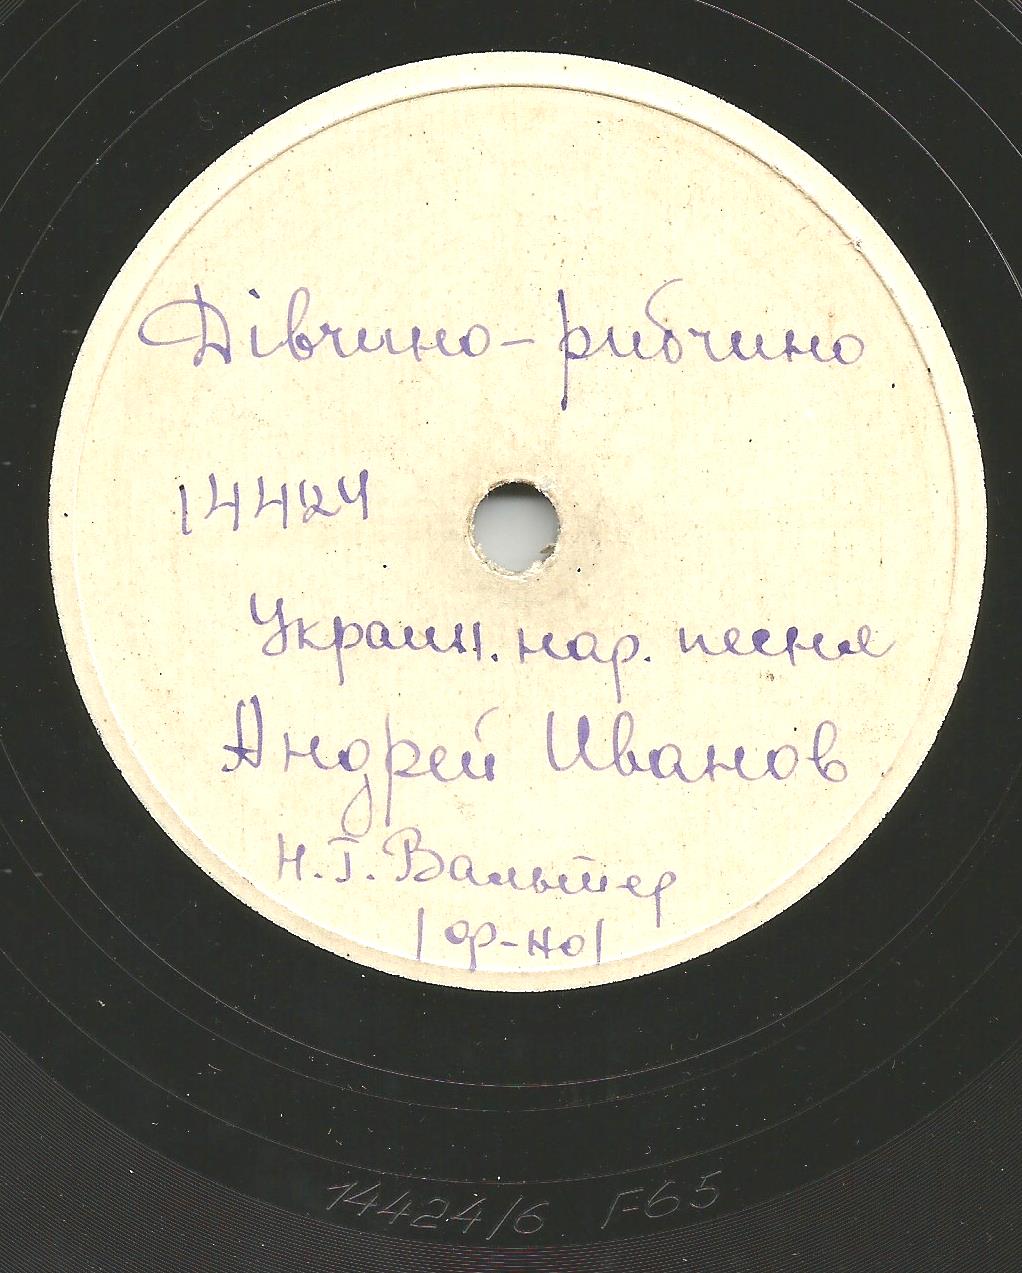 Дівчино-рибчино
14424
Украин. нар. песня
Андрей Иванов
Н.Г. Вальтер
/ф-но/
14424/6 F65